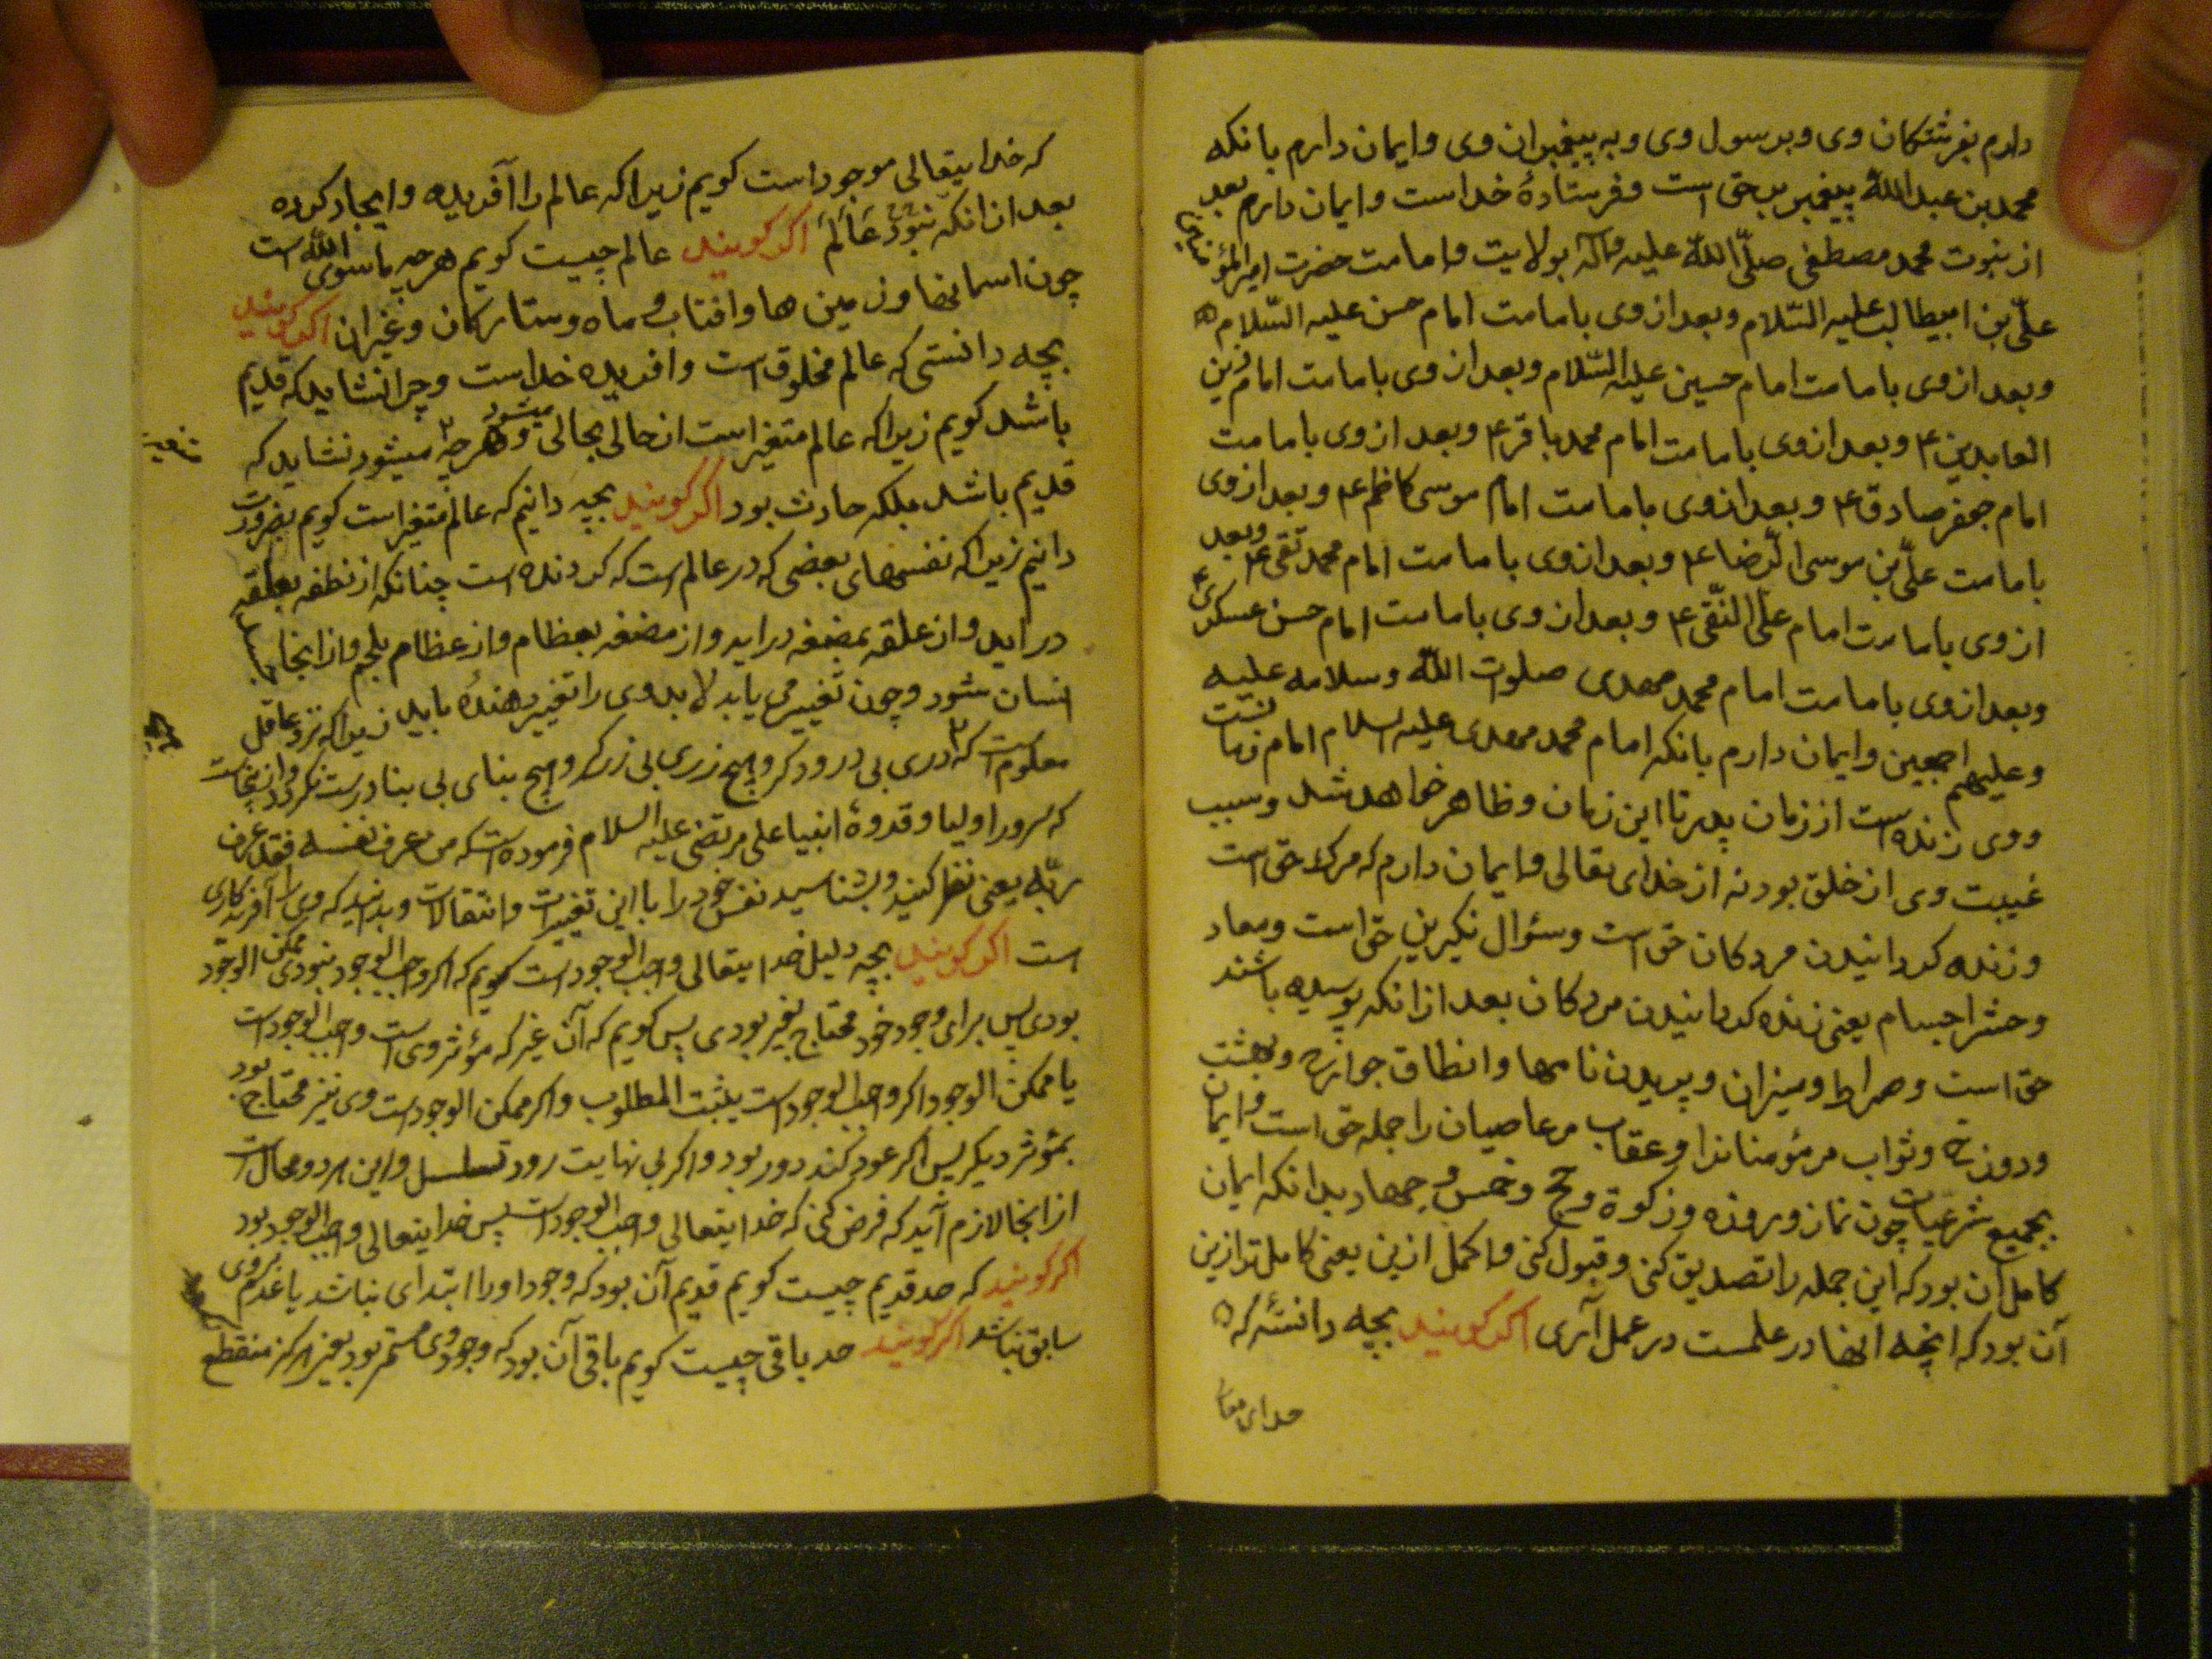 دارم بفرشتکان وی وبرسول وی وبه پیغمبران وی وایمان دارم بانکه
محمد بن عبدالله پیغمبر برحق است وفرستادهٔ خداست وایمان دارم بعد
از نبوت محمد مصطفی صلّی الله علیه وآله بولایت وامامت حضرت امیرالمؤمنین
علیّ بن ابیطالب علیه السّلام وبعد از وی بامامت امام حسن علیه السّلام
وبعد از وی بامامت امام حسین علیه السّلام وبعد از وی بامامت امام زین
العابدین ع وبعد از وی بامامت امام محمد باقر ع وبعد از وی بامامت
امام جعفر صادق ع وبعد از وی بامامت امام موسی کاظم ع وبعد از وی
بامامت علیّ بن موسی الرّضا ع وبعد از وی بامامت امام محمد تقی ع وبعد
از وی بامامت امام علیّ النّقی ع وبعد از وی بامامت امام حسن عسکری ع
وبعد از وی بامامت امام محمد مهدی صلوات الله وسلامه علیه
وعلیهم اجمعین وایمان دارم بانکه امام محمد مهدی علیه السلام امام زمانست
ووی زنده است از زمان پدر تا این زمان وظاهر خواهد شد وسبب
غیبت وی از خلق بود نه از خدای تعالی وایمان دارم که مرک حق است
وزنده کردانیدن مردکان حق است وسؤال نکیرین حق است ومعاد
وحشر اجسام یعنی زنده کردانیدن مردکان بعد از انکه پوسیده باشند
حق است وصراط ومیزان وپریدن نامها وانطاق جوارح وبهشت
ودوزخ وثواب مر مؤمنانرا وعقاب مر عاصیان را جمله حق است وایمان
بجمیع شرعیات چون نماز وروزه وزکوة وحج وخمس وجهاد بدانکه ایمان
کامل ان بود که این جمله را تصدیق کنی وقبول کنی واکمل ازین یعنی کامل تر ازین
آن بود که انچه اینها در علمست در عمل آری اکر کویند بچه دانستهٔ که
خدای تعالی
که خدایتعالی موجود است کویم زیرا که عالم را آفریده وایجاد کرده
بعد از انکه نبود عَالَم اکر کویند عالم چیست کویم هر چه ماسوی الله است
چون اسمانها وزمین ها وافتاب وماه وستارکان وغیران اکر کویند
بچه دانستی که عالم مخلوق است وافریده خداست وچرا نشاید که قدیم
باشد کویم زیرا که عالم متغیر است از حالی بحالی میشود وهر چه میشود نشاید که
متغیر
قدیم باشد بلکه حادث بود اکر کویند بچه دانیم که عالم متغیر است کویم بضرورت
دانیم زیرا که نفسهای بعضی که در عالم است که کردنده است چنانکه از نطفه بعلقه
در اید واز علقه بمضغه در اید واز مضغه بعظام واز عظام بلحم واز انجا
انسان شود وچون تغییر می یابد لابد وی را تغییر دهندهٔ باید زیرا که نزد عاقل
معلوم است که دری بی درودکر وهیچ زری بی زرکر وهیچ بنای بی بنا درست نکردد وازینجاست
که سرور اولیا وقدوهٔ انبیا علی مرتضی علیه السلام فرموده است که من عرف نفسه فقد عرف
ربّه یعنی نظر کنید وبشناسید نفس خود را با این تغییرات وانتقالات وبدانید که وی را آفریدکاری
است اکر کویند بچه دلیل خدایتعالی واجب الوجود است کویم که اکر واجب الوجود نبودی ممکن الوجود
بودی پس برای وجود خود محتاج بغیر بودی پس کویم که آن غیر که مؤثر وی است واجب الوجود است
یا ممکن الوجود اکر واجب الوجود است یثبت المطلوب واکر ممکن الوجود است وی نیز محتاج بود
بمؤثر دیکر پس اکر عود کند دور بود واکر بی نهایت رود تسلسل واین هر دو محال است
از انجا لازم آید که فرض کنی که خدایتعالی واجب الوجود است پس خدایتعالی واجب الوجود بود
اکر کویند که حد قدیم چیست کویم قدیم آن بود که وجود اورا ابتدای نباشد یا عدم بر وی
سابق نباشد اکر کویند حد باقی چیست کویم باقی آن بود که وجود وی مستمر بود یعنی هرکز منقطع